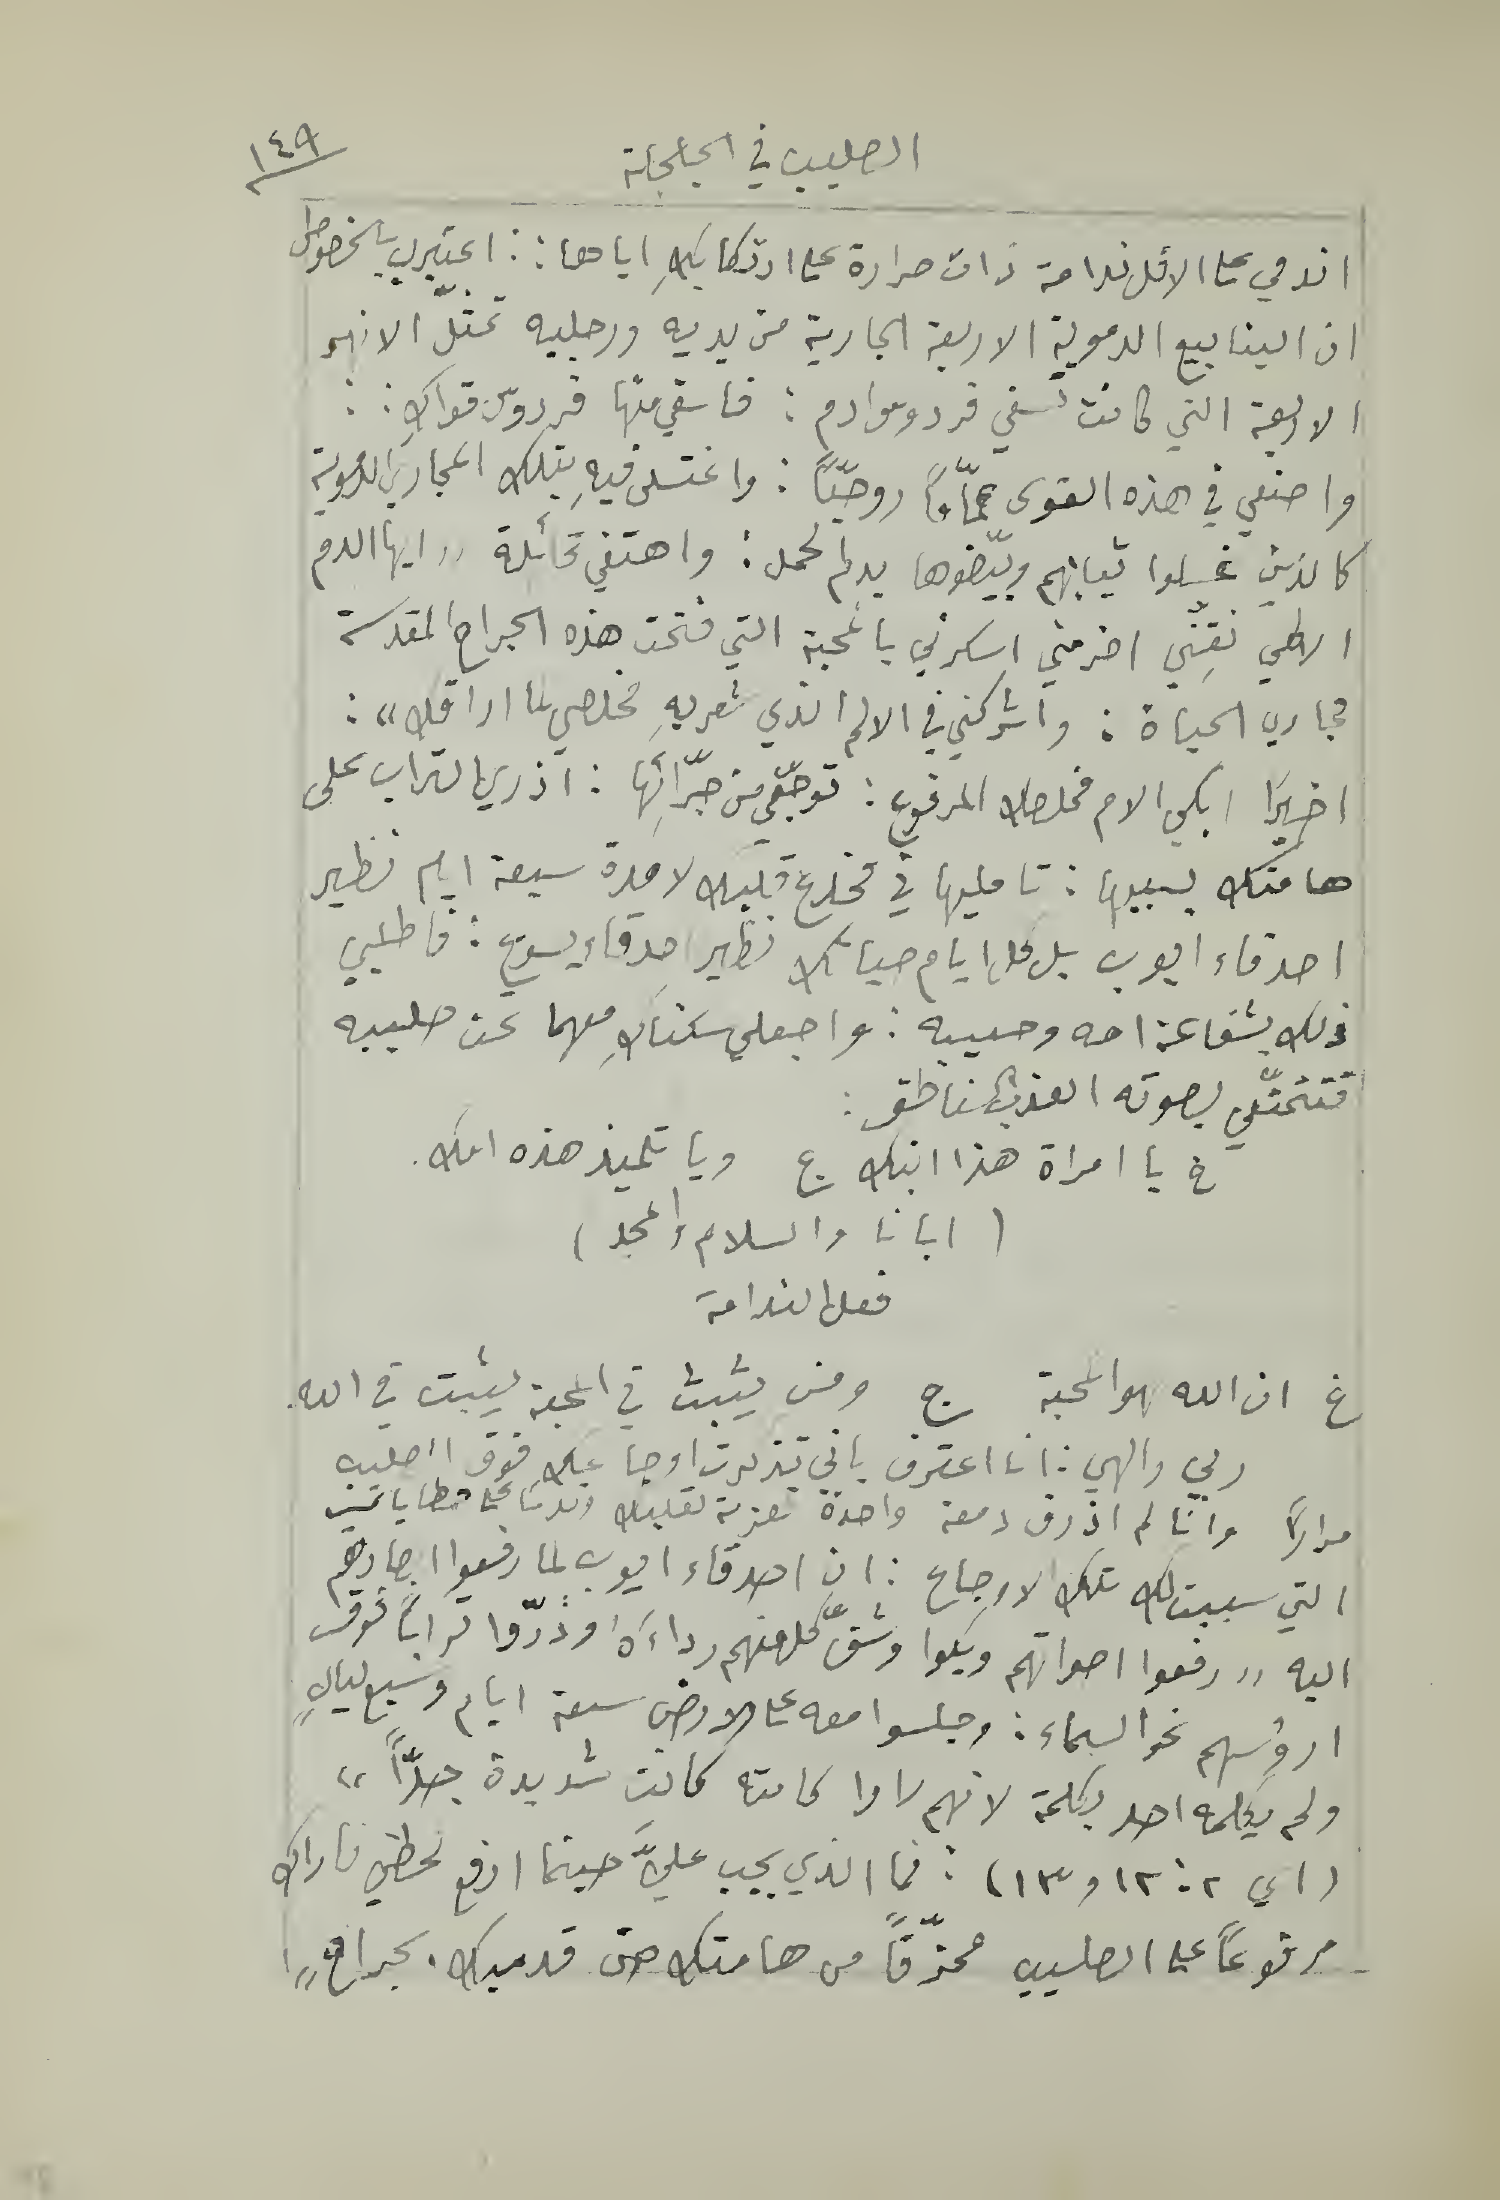 الصليب في الجلجلة
١٤٩
اندمي على الاقل ندامة ذات حرارة على ارتكابكِ اياها : : اعتبري بالخصوص
ان الينابيع الدموية الاربعة الجارية من يديه ورجليه تمثّل الانهر
الاربعة التي كانت تسقي فردوس ادم : فاسقي منها فردوس قواكِ : :
واصنعي في هذه القوى حمّاماً روحيّاً : واغتسلي فيهِ بتلك المجاري الدموية
كالذين غسلوا ثيابهم وبيّضوها بدم الحمل : واهتفي قائلة „ ايها الدم
الالهي نقِّني اضرمني اسكرني بالمحبة التي فتحت هذه الجراح المقدسة
مجاري الحياة : واشركني في الالم الذي شعر بهِ مخلصي لما اراقك “ :
اخيرًا ابكي الام مخلصك المرفوع : توجّعي من جرّائها : اذري التراب على
هامتك بسببها : تامليها في مخدع قلبك لا مدة سبعة ايام نظير
اصدقاء ايوب بل كل ايام حياتك نظير اصدقاء يسوع : فاطلبي
ذلك بشفاعة امه وحبيبه : واجعلي سكناكِ معهما تحت صليبه
فتتمتّعي بصوته العذب الناطق :
غ يا امراة هذا ابنك ج ويا تلميذ هذه امك .
( ابانا والسلام والمجد )
فعل الندامة
غ ان الله هو المحبة ج ومن يثبت في المحبة يثبت في الله .
ربي والهي : انا اعترف باني تذكرت اوجاعك فوق الصليب
مرارًا وانا لم اذرف دمعة واحدة تعزية لقلبك وندمًا على خطاياي
التي سببت لك تلك الاوجاع : ان اصدقاء ايوب لما رفعوا ابصارهم
اليه „ رفعوا اصواتهم وبكوا وشقّ كل منهم رداءَهُ وذرّوا تراباً فوق
ارؤسهم نحو السماء : وجلسوا معه على الارض سبعة ايام وسبع ليالٍ
ولم يكلمه احد بكلمة لانهم راوا كابته كانت شديدة جدّاً “
( اي ٢ : ١٢ و ١٣ ) : فما الذي يجب عليَّ حينما ارفع لحظي فاراك
مرفوعاً على الصليب ممزّقاً من هامتك حتى قدميك . بجراحٍ